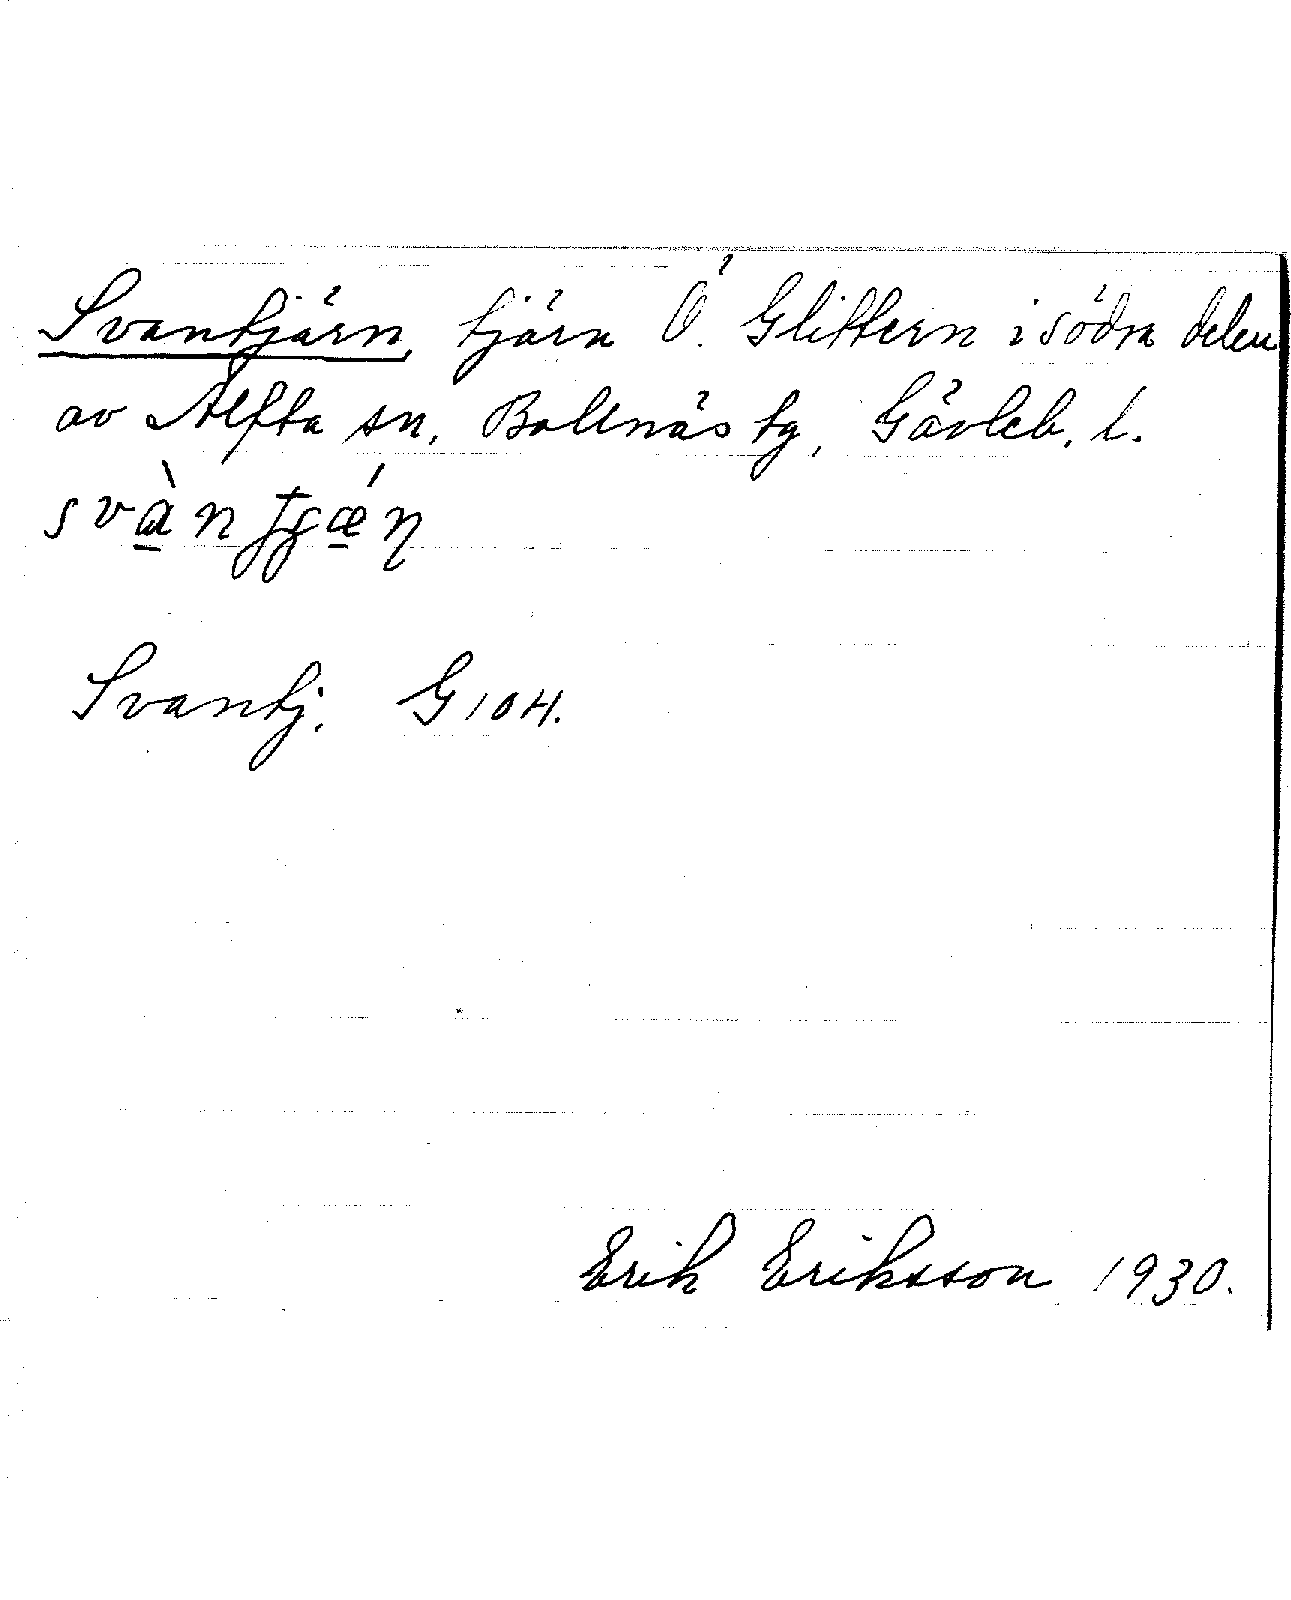 Svantjärn, tjärn Ö. Glittern i södra delen
av Alfta sn, Bollnäs tg, Gävleb. l.
svàntʃǽn
Svantj. G 104.
Erik Eriksson 1930.